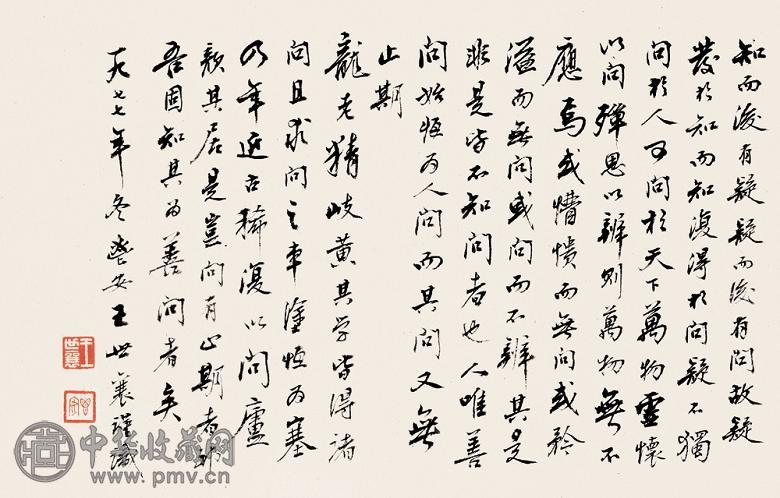 知而後有疑疑而後有問故疑
發於知而知復得於問疑不獨
問於人可問於天下萬物靈懷
以問殫思以辨則萬物無不
應焉或懵憒而無問或矜
溢而無問或問而不辨其是
非是皆不知問者也人唯善
問始恆為人問而其問又無
止期
龍老精岐黃其学皆得諸
問且求問之車塗恆為塞
乃年近古稀復以問廬
顏其居是豈問有止期者
吾固知其為善問者矣
一九七七年冬暢安王世襄謹識
王世襄
中华收藏网
www.pmv.cn